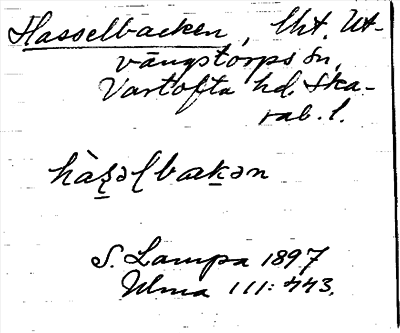 Hasselbacken, lht. Ut-
vängstorps sn,
Vartofta hd. Ska-
rab. l.
hàs̠əl bak̠ən
S. Lampa 1897
Ulma 111:443.